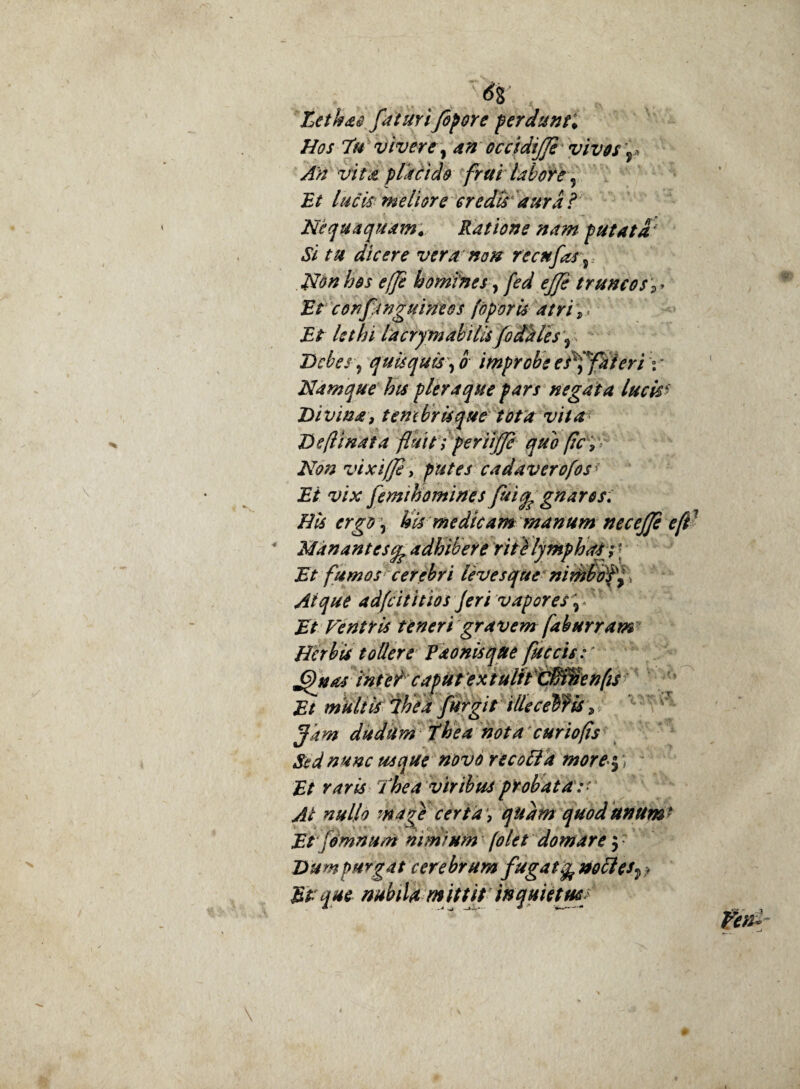 68
Lethæo saturi sopore perdunt.
Hos Tu vivere, an occidisse vivos,
An vitæ placido frui labore,
Et lucis meliore credis aurâ?
Nequaquam. Ratione nam putatâ
Si tu dicere vera non recusas,
Non hos esse homines, sed esse truncos,
Et consanguineos soporis atri,
Et lethi lacrymabilis sodales,
Debes, quisquis, ô improbe es, fateri:
Namque his pleraque pars negata lucis
Divinæ, tenebrisque tota vita
Destinata fluit; periisse quo sic,
Non vixisse, putes cadaverosos
Et vix semihomines suiq; gnaros.
His ergo, his medicam manum necesse est
Manantesq; adhibere ritè lymphas;
Et fumos cerebri levesque nimbos,
Atque adscititios seri vapores,
Et Ventris teneri gravem saburram
Herbis tollere Pæonisque succis:
Quas inter caput extulit Chinensis
Et multis Thea surgit illecebris,
Jam dudum Thea nota curiosis
Sed nunc usque novo recocta more;
Et raris Thea viribus probata:
At nullo magè certa, quàm quod unum
Et somnum nimium solet domare;
Dum purgat cerebrum fugatq; noctes,
Et que nubila mittit inquietus
Veni-